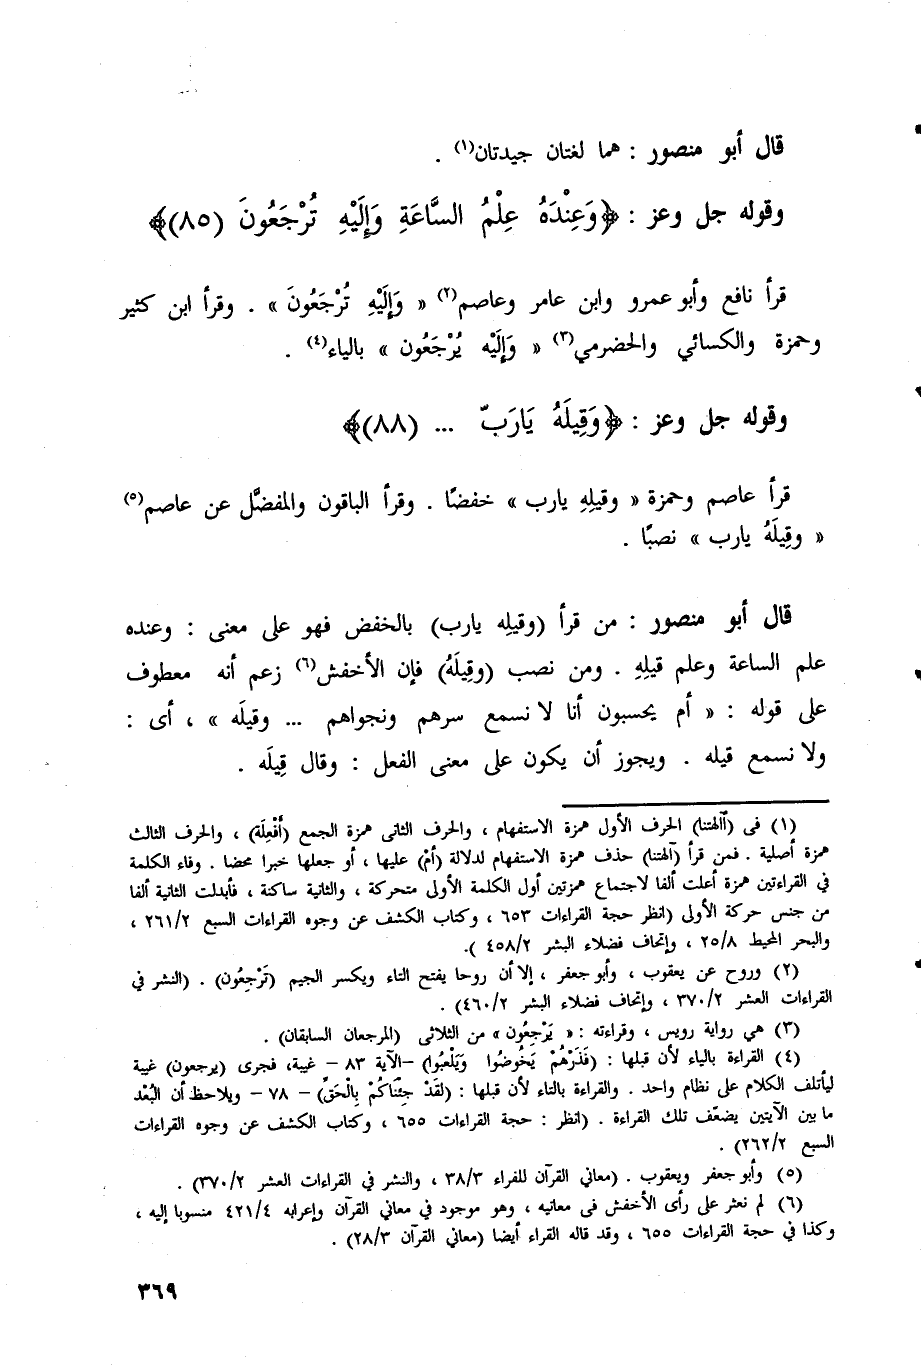 قال أبو منصور : هما لغتان جيدتان(١) .
وقوله جل وعز : ﴿وَعِنْدَهُ عِلْمُ السَّاعَةِ وَإِلَيْهِ تُرْجَعُونَ (٨٥)﴾
قرأ نافع وأبو عمرو وابن عامر وعاصم(٢) « وَإِلَيْهِ تُرْجَعُونَ » . وقرأ ابن كثير
وحمزة والكسائي والحضرمي(٣) « وَإِلَيْه يُرْجَعُون » بالياء(٤) .
وقوله جل وعز : ﴿وَقِيلَهُ يَارَبّ ... (٨٨)﴾
قرأ عاصم وحمزة « وقيلِهِ يارب » خفضًا . وقرأ الباقون والمفضَّل عن عاصم(٥)
« وقِيلَهُ يارب » نصبًا .
قال أبو منصور : من قرأ (وقيلِه يارب) بالخفض فهو على معنى : وعنده
علم الساعة وعلم قيلِهِ . ومن نصب (وقِيلَهُ) فإن الأخفش(٦) زعم أنه معطوف
على قوله : « أم يحسبون أنا لا نسمع سرهم ونجواهم ... وقيلَه » ، أى :
ولا نسمع قيله . ويجوز أن يكون على معنى الفعل : وقال قِيلَه .
(١) فى (أآلهتنا) الحرف الأول همزة الاستفهام ، والحرف الثانى همزة الجمع (أَفْعِلَة) ، والحرف الثالث
همزة أصلية . فمن قرأ (آلهتنا) حذف همزة الاستفهام لدلالة (أمْ) عليها ، أو جعلها خبرا محضا . وفاء الكلمة
في القراءتين همزة أعلت ألفا لاجتماع همزتين أول الكلمة الأولى متحركة ، والثانية ساكنة ، فأبدلت الثانية ألفا
من جنس حركة الأولى (انظر حجة القراءات ٦٥٣ ، وكتاب الكشف عن وجوه القراءات السبع ٢٦١/٢ ،
والبحر المحيط ٢٥/٨ ، وإتحاف فضلاء البشر ٤٥٨/٢ ).
(٢) وروح عن يعقوب ، وأبو جعفر ، إلا أن روحا يفتح التاء ويكسر الجيم (تَرْجِعُون) . (النشر في
القراءات العشر ٣٧٠/٢ ، وإتحاف فضلاء البشر ٤٦٠/٢) .
(٣) هي رواية رويس ، وقراءته : « يَرْجِعُون » من الثلاثى (المرجعان السابقان) .
(٤) القراءة بالياء لأن قبلها : (فَذَرْهُمْ يَخُوضُوا وَيَلْعَبُوا) –الآية ٨٣ – غيبة، فجرى (يرجعون) غيبة
ليأتلف الكلام على نظام واحد . والقراءة بالتاء لأن قبلها : (لقَدْ جِئْنَاكُمْ بِالْحَقِّ) – ٧٨ – ويلاحظ أن البُعْد
ما بين الآيتين يضعّف تلك القراءة . (انظر : حجة القراءات ٦٥٥ ، وكتاب الكشف عن وجوه القراءات
السبع ٢٦٢/٢) .
(٥) وأبو جعفر ويعقوب . (معاني القرآن للفراء ٣٨/٣ ، والنشر في القراءات العشر ٣٧٠/٢) .
(٦) لم نعثر على رأى الأخفش فى معانيه ، وهو موجود في معاني القرآن وإعرابه ٤٢١/٤ منسوبا إليه ،
وكذا في حجة القراءات ٦٥٥ ، وقد قاله الفراء أيضا (معاني القرآن ٢٨/٣) .
٣٦٩